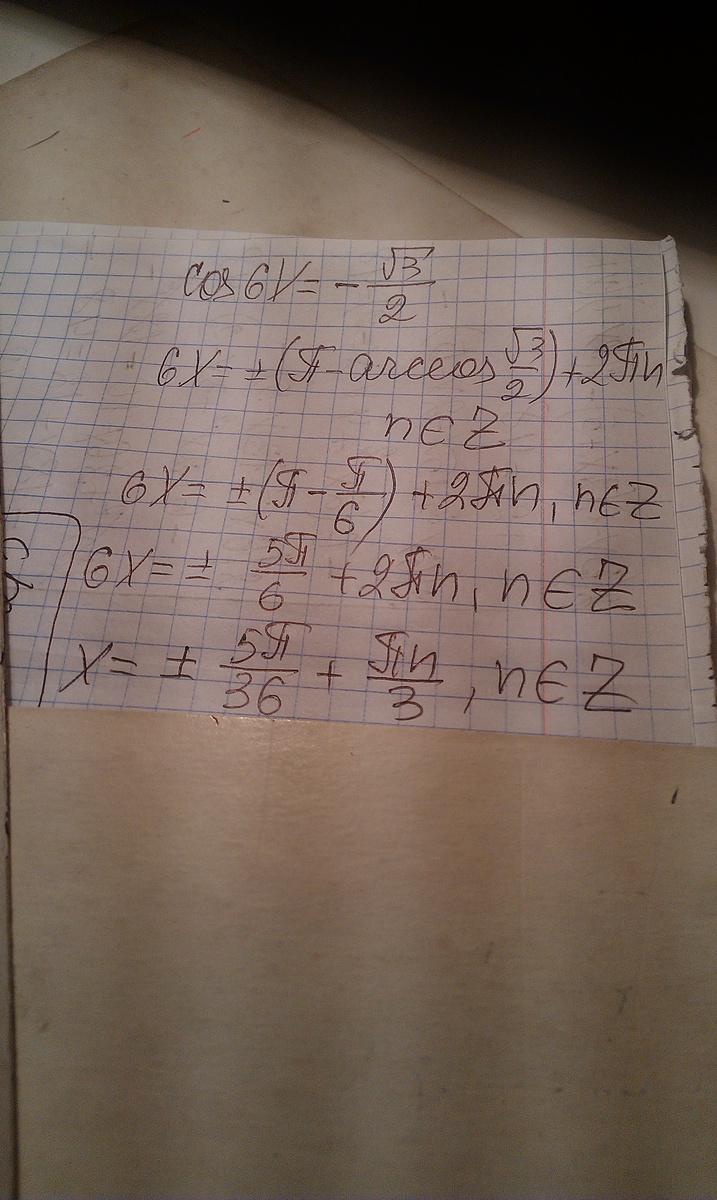 cos 6x = - √3/2
6x = ± (π - arccos √3/2) + 2πn
n ∈ Z
6x = ± (π - π/6) + 2πn, n ∈ Z
6x = ± 5π/6 + 2πn, n ∈ Z
x = ± 5π/36 + πn/3, n ∈ Z